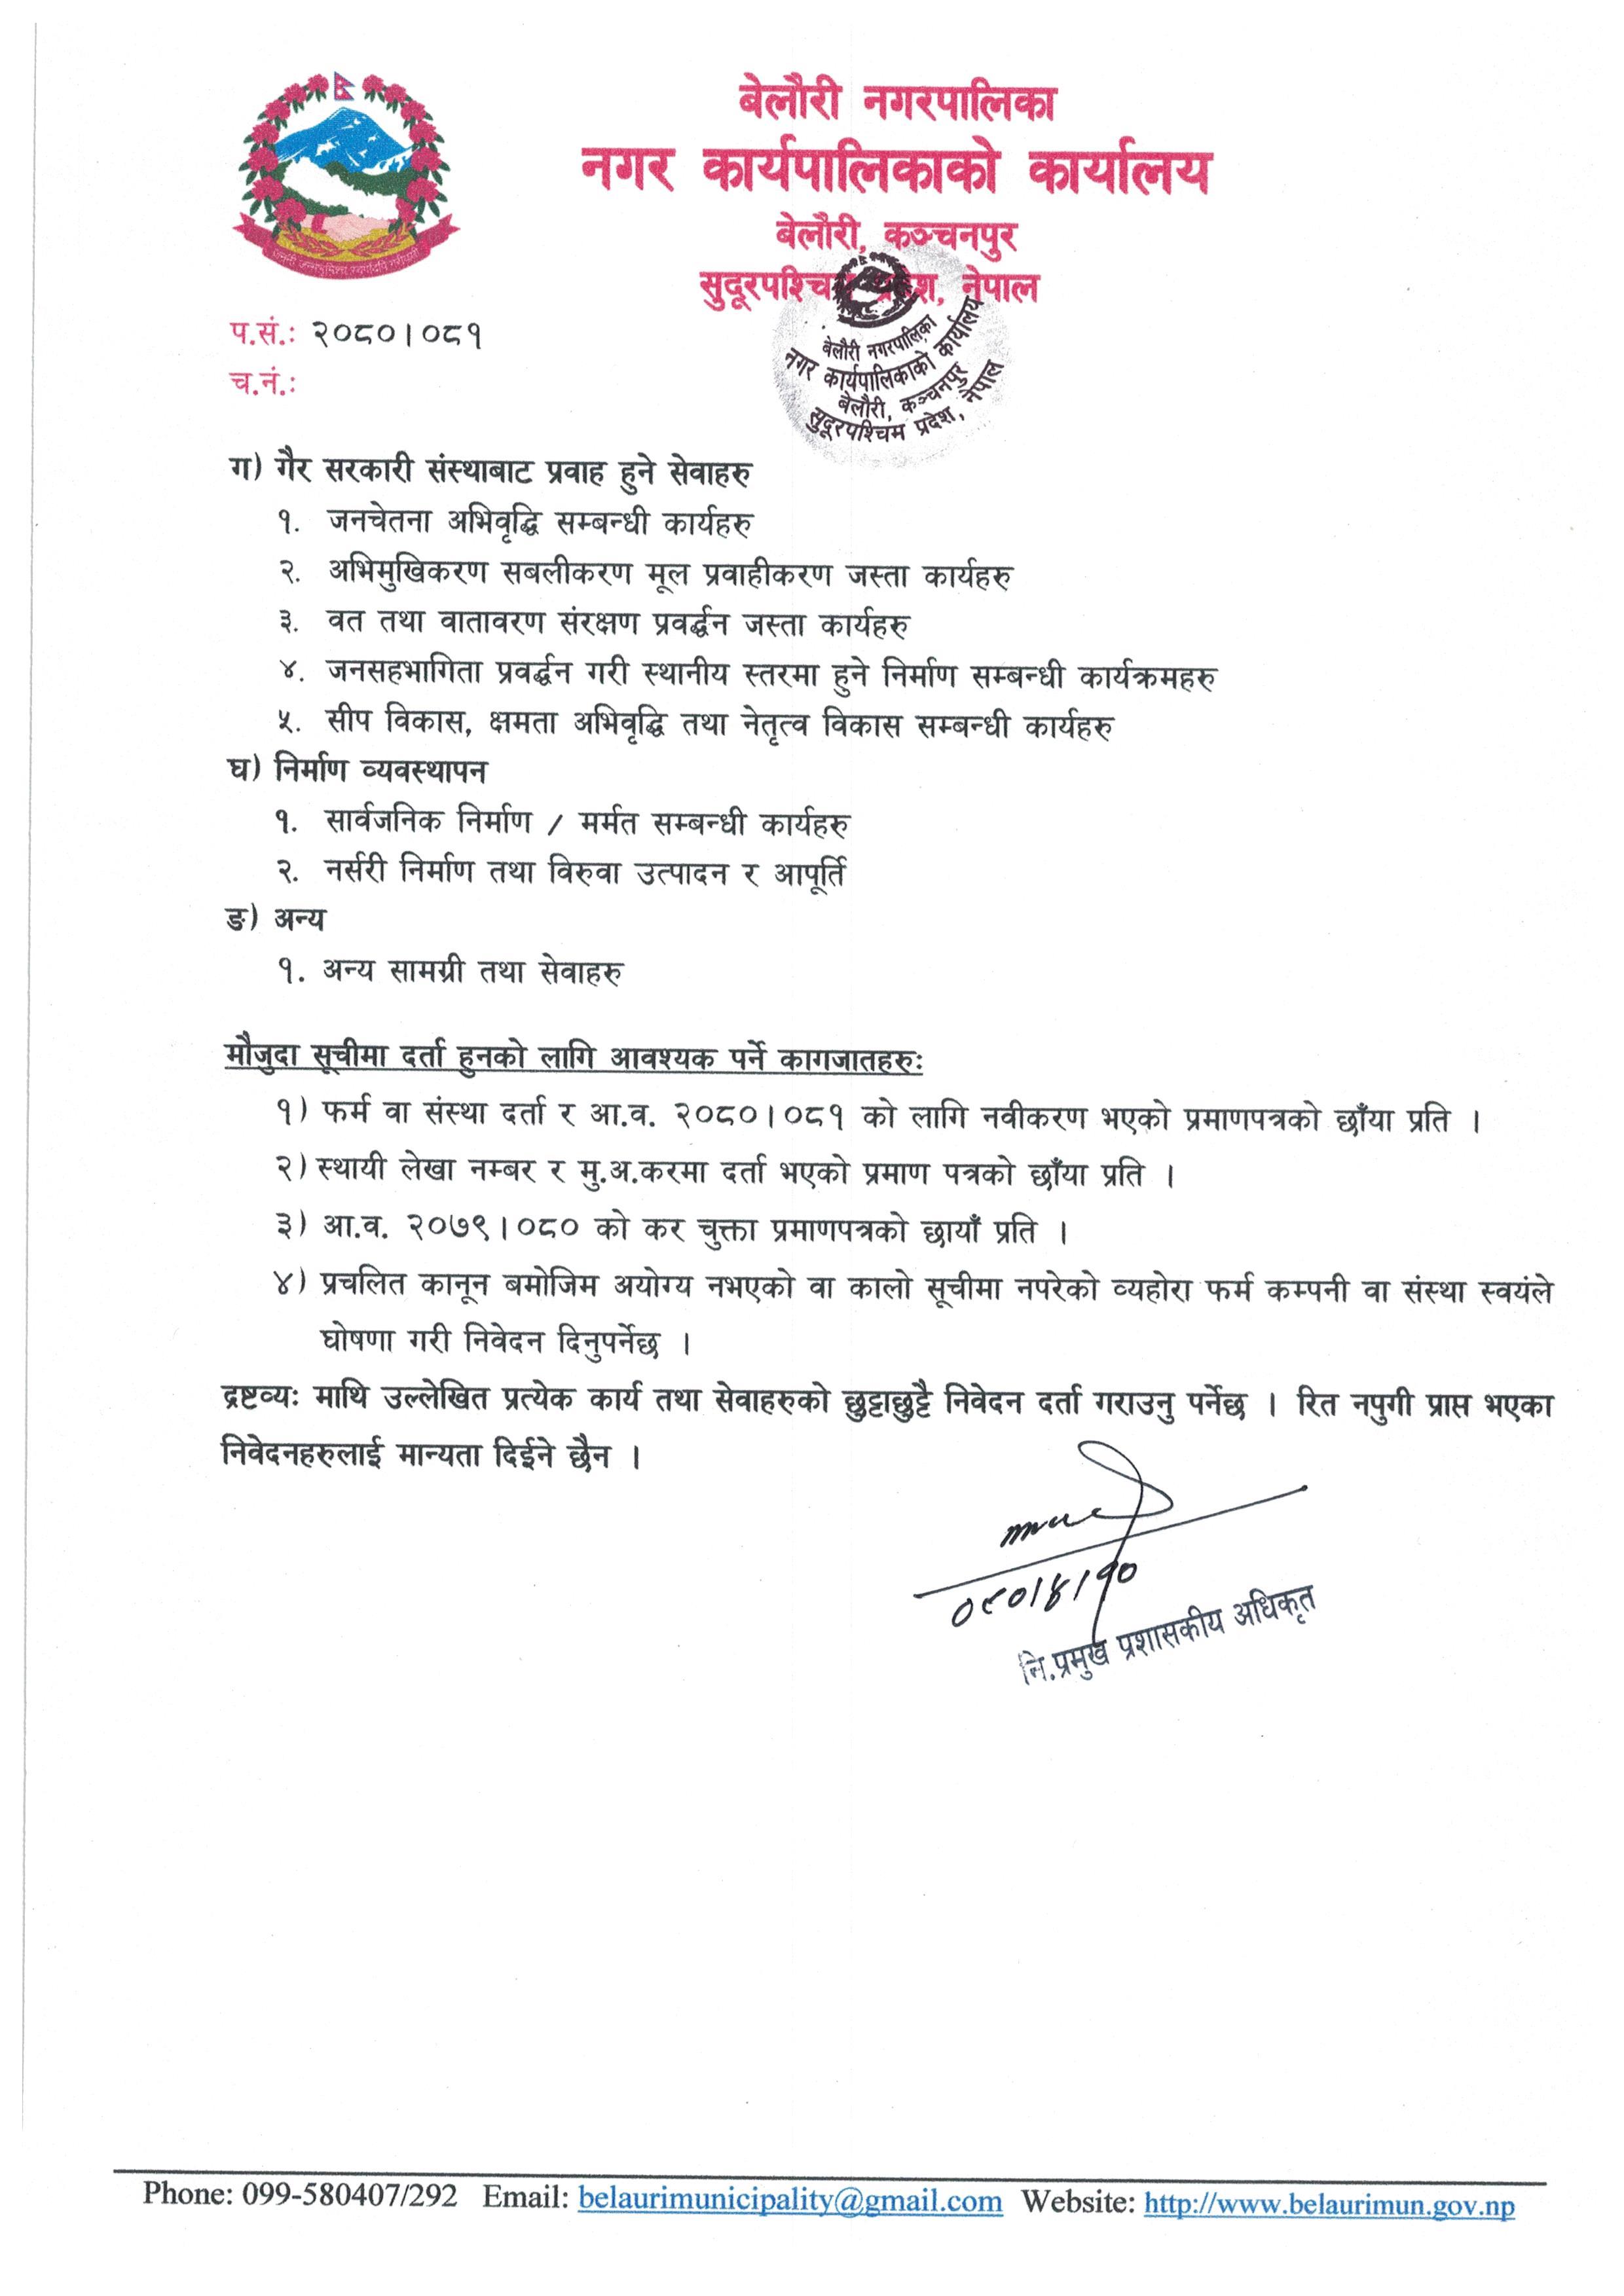 बेलौरी नगरपालिका
नगर कार्यपालिकाको कार्यालय
बेलौरी, कञ्चनपुर
सुदूरपश्चिम प्रदेश, नेपाल
बेलौरी नगरपालिका
नगर कार्यपालिकाको कार्यालय
बेलौरी, कञ्चनपुर
सुदूरपश्चिम प्रदेश, नेपाल
प.सं.: २०८०।०८१
च.नं.:
ग) गैर सरकारी संस्थाबाट प्रवाह हुने सेवाहरु
१. जनचेतना अभिवृद्धि सम्बन्धी कार्यहरु
२. अभिमुखिकरण सबलीकरण मूल प्रवाहीकरण जस्ता कार्यहरु
३. वत तथा वातावरण संरक्षण प्रवर्द्धन जस्ता कार्यहरु
४. जनसहभागिता प्रवर्द्धन गरी स्थानीय स्तरमा हुने निर्माण सम्बन्धी कार्यक्रमहरु
५. सीप विकास, क्षमता अभिवृद्धि तथा नेतृत्व विकास सम्बन्धी कार्यहरु
घ) निर्माण व्यवस्थापन
१. सार्वजनिक निर्माण / मर्मत सम्बन्धी कार्यहरु
२. नर्सरी निर्माण तथा विरुवा उत्पादन र आपूर्ति
ङ) अन्य
१. अन्य सामग्री तथा सेवाहरु
मौजुदा सूचीमा दर्ता हुनको लागि आवश्यक पर्ने कागजातहरुः
१) फर्म वा संस्था दर्ता र आ.व. २०८०।०८१ को लागि नवीकरण भएको प्रमाणपत्रको छाँया प्रति ।
२) स्थायी लेखा नम्बर र मु.अ.करमा दर्ता भएको प्रमाण पत्रको छाँया प्रति ।
३) आ.व. २०७९।०८० को कर चुक्ता प्रमाणपत्रको छायाँ प्रति ।
४) प्रचलित कानून बमोजिम अयोग्य नभएको वा कालो सूचीमा नपरेको व्यहोरा फर्म कम्पनी वा संस्था स्वयंले
घोषणा गरी निवेदन दिनुपर्नेछ ।
द्रष्टव्यः माथि उल्लेखित प्रत्येक कार्य तथा सेवाहरुको छुट्टाछुट्टै निवेदन दर्ता गराउनु पर्नेछ । रित नपुगी प्राप्त भएका
निवेदनहरुलाई मान्यता दिईने छैन ।
०८०।४।१०
नि.प्रमुख प्रशासकीय अधिकृत
Phone: 099-580407/292 Email: belaurimunicipality@gmail.com Website: http://www.belaurimun.gov.np